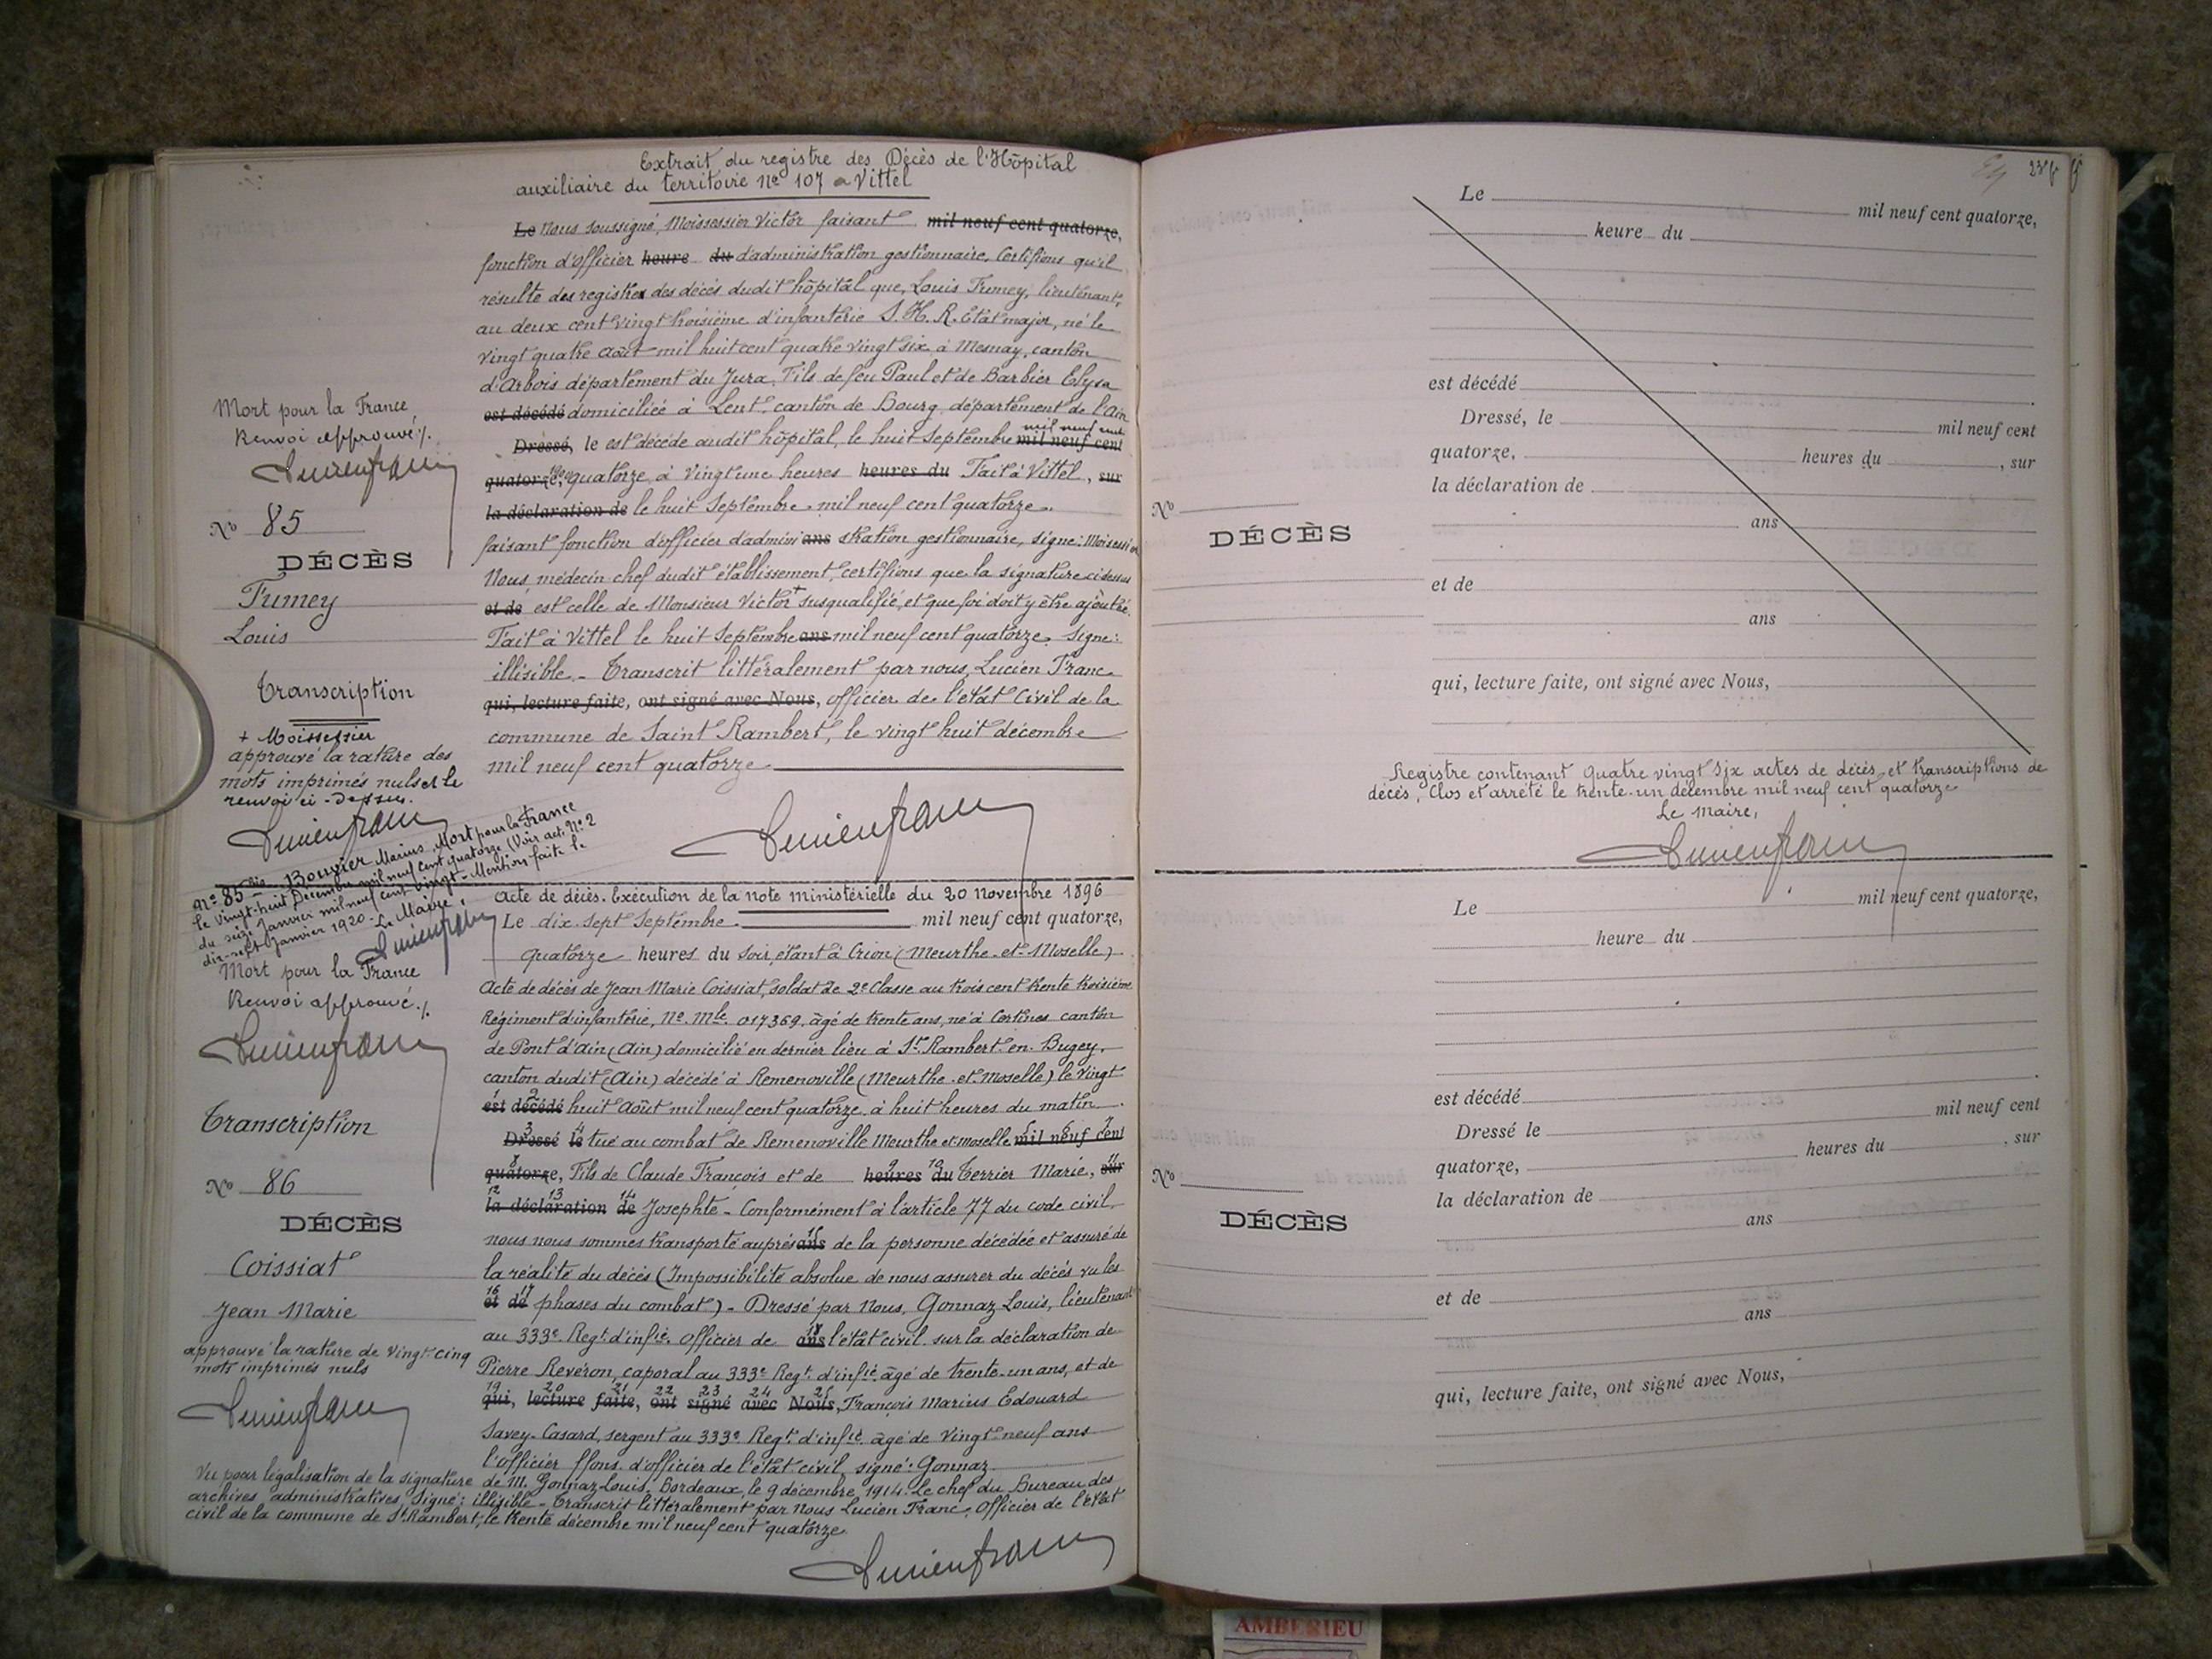 Extrait du registre des Décès de l'Hôpital
auxiliaire du territoire No 107 a Vittel
Le Nous soussigné, Moissessier Victor faisant mil neuf cent quatorze,
fonction d'officier heure du d'administration gestionnaire, Certifions qu'il
résulte des registres des décès dudit hôpital que, Louis Fumey, lieutenant,
au deux cent vingt troisième d'infanterie S. H. R. Etat major, né le
vingt quatre août mil huit cent quatre vingt six à Mesnay, canton
d'Arbois département du Jura. Fils de feu Paul et de Barbier Elysa
est décédé domiciliée à Lent, canton de Bourg, département de l'Ain
mil neuf cent
Dressé, le est décédé audit hôpital, le huit Septembre mil neuf cent
quatorze, quatorze, à vingt une heures heures du Fait à Vittel, sur
la déclaration de le huit Septembre mil neuf cent quatorze.
faisant fonction d'officier d'admini ans stration gestionnaire, signé: Moisessier
Nous, médecin chef dudit établissement, certifions que la signature ci dessus
et de est celle de Monsieur Victor + susqualifié, et que foi doit y être ajoutée.
Fait à Vittel le huit Septembre ans mil neuf cent quatorze. Signé:
illisible - Transcrit littéralement par nous, Lucien Franc
qui, lecture faite, ont signé avec Nous, officier de l'état Civil de la
commune de Saint Rambert, le vingt huit décembre
mil neuf cent quatorze
Lucien franc
Mort pour la France
Renvoi approuvé ./.
Lucien franc
No 85
DÉCÈS
Fumey
Louis
Transcription
+ Moissessier
approuvé la rature des
mots imprimés nuls et le
renvoi ci-dessus.
Lucien franc
No 85 bis - Bouvier Marius, Mort pour la France
le vingt-huit Décembre mil neuf cent quatorze (Voir act. No 2
du seize Janvier mil neuf cent vingt - Mention faite le
dix-sept Janvier 1920 - Le Maire,
Lucien franc
Acte de décès. Exécution de la note ministérielle du 20 Novembre 1896
Le dix-sept Septembre mil neuf cent quatorze,
quatorze heures du soir, étant à Crion (Meurthe-et-Moselle)
Acte de décès de Jean Marie Coissiat, soldat de 2e Classe au trois cent trente troisième
Régiment d'infanterie, No. Mle. 017369. âgé de trente ans, né à Certines canton
de Pont d'Ain (Ain) domicilié en dernier lieu à St. Rambert-en-Bugey,
canton dudit (Ain) décédé à Remenoville (Meurthe-et-Moselle) le vingt
1 2
est décédé huit Août mil neuf cent quatorze à huit heures du matin.
3 4 5 6 7
Dressé le tué au combat de Remenoville Meurthe et moselle mil neuf cent
8 9 10 11
quatorze, Fils de Claude François et de heures du Terrier Marie, sur
12 13 14
la déclaration de Josephte - Conformément à l'article 77 du code civil,
15
nous nous sommes transporté auprès ans de la personne décédée et assuré de
la réalité du décès (Impossibilité absolue de nous assurer du décès vu les
16 17
et de phases du combat) - Dressé par Nous, Gonnaz Louis, lieutenant
18
au 333e Regt. d'infie. Officier de ans l'état civil. sur la déclaration de
Pierre Revéron, caporal au 333e Regt. d'infie. âgé de trente-un ans, et de
19 20 21 22 23 24 25
qui, lecture faite, ont signé avec Nous, François Marius Edouard
Savey-Casard, sergent au 333e Regt. d'infie. âgé de vingt-neuf ans
l'officier ffons. d'officier de l'état civil, signé: Gonnaz
Vu pour légalisation de la signature de M. Gonnaz Louis. Bordeaux, le 9 décembre 1914. Le chef du Bureau des
archives administratives, Signé: illisible - Transcrit littéralement par Nous Lucien Franc, Officier de l'état
civil de la commune de St. Rambert, le trente décembre mil neuf cent quatorze
Lucien franc
Mort pour la France
Renvoi approuvé ./.
Lucien franc
Transcription
No 86
DÉCÈS
Coissiat
Jean Marie
approuvé la rature de vingt-cinq
mots imprimés nuls
Lucien franc
Le mil neuf cent quatorze,
heure du
est décédé
Dressé, le mil neuf cent
quatorze, heures du , sur
la déclaration de
No
DÉCÈS
ans
et de
ans
qui, lecture faite, ont signé avec Nous,
Registre contenant quatre vingt six actes de décès et transcriptions de
décès, Clos et arrêté le trente-un décembre mil neuf cent quatorze
Le Maire,
Lucien franc
Le mil neuf cent quatorze,
heure du
est décédé
Dressé le mil neuf cent
quatorze, heures du , sur
la déclaration de
No
DÉCÈS
ans
et de
ans
qui, lecture faite, ont signé avec Nous,
AMBERIEU